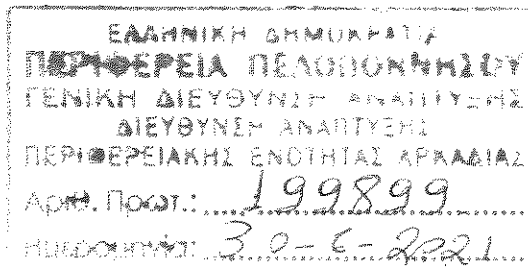 ΕΛΛΗΝΙΚΗ ΔΗΜΟΚΡΑΤΙΑ
ΠΕΡΙΦΕΡΕΙΑ ΠΕΛΟΠΟΝΝΗΣΟΥ
ΓΕΝΙΚΗ ΔΙΕΥΘΥΝΣΗ ΑΝΑΠΤΥΞΗΣ
ΔΙΕΥΘΥΝΣΗ ΑΝΑΠΤΥΞΗΣ
ΠΕΡΙΦΕΡΕΙΑΚΗΣ ΕΝΟΤΗΤΑΣ ΑΡΚΑΔΙΑΣ
Αριθ. Πρωτ.: 199899
Ημερομηνία: 30-6-2021